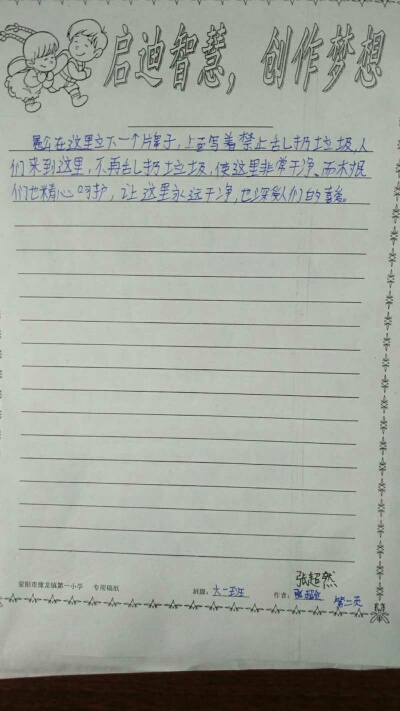 启迪智慧，创作梦想
愚公在这里立下一个牌子，上面写着禁止乱扔垃圾，人
们来到这里，不再乱扔垃圾，使这里非常干净、而木
们也精心呵护，让这里永远干净，也深受人们的喜爱。
荥阳市豫龙镇第一小学 专用稿纸 班级：六一班 作者：
张超然
第二天